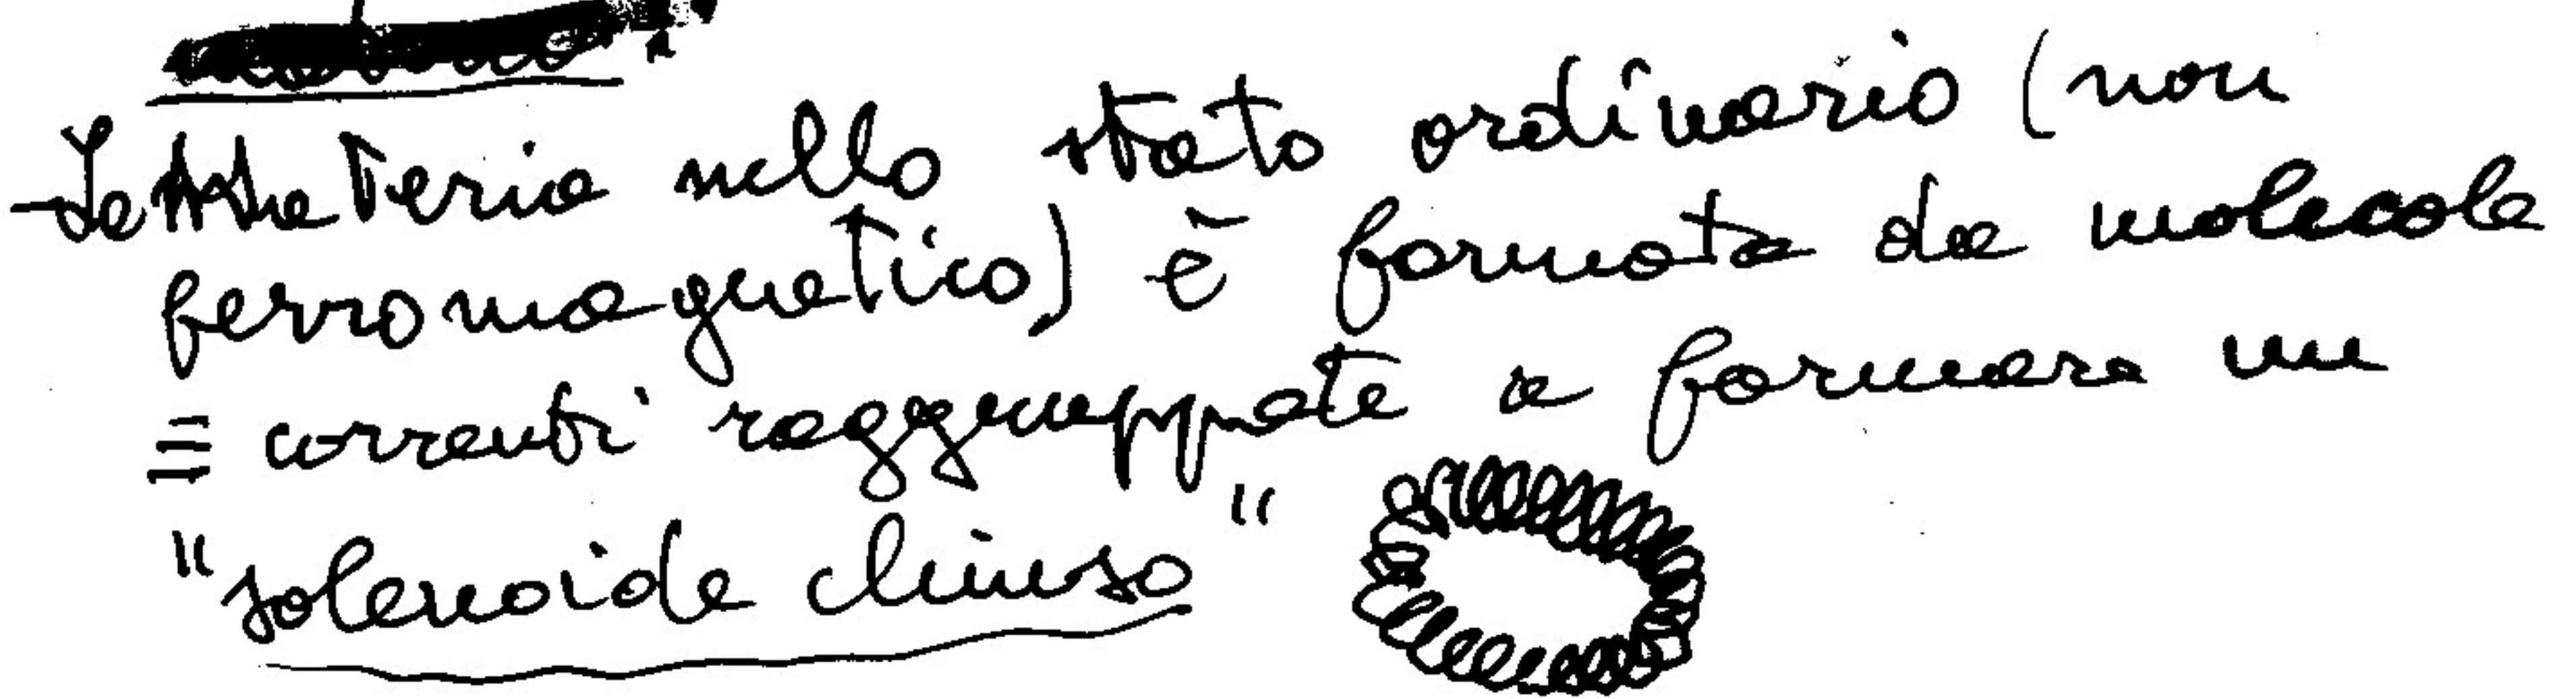 - La materia nello stato ordinario (non
ferromagnetico) è formata da molecole
≡ correnti raggruppate a formare un
"solenoide chiuso"